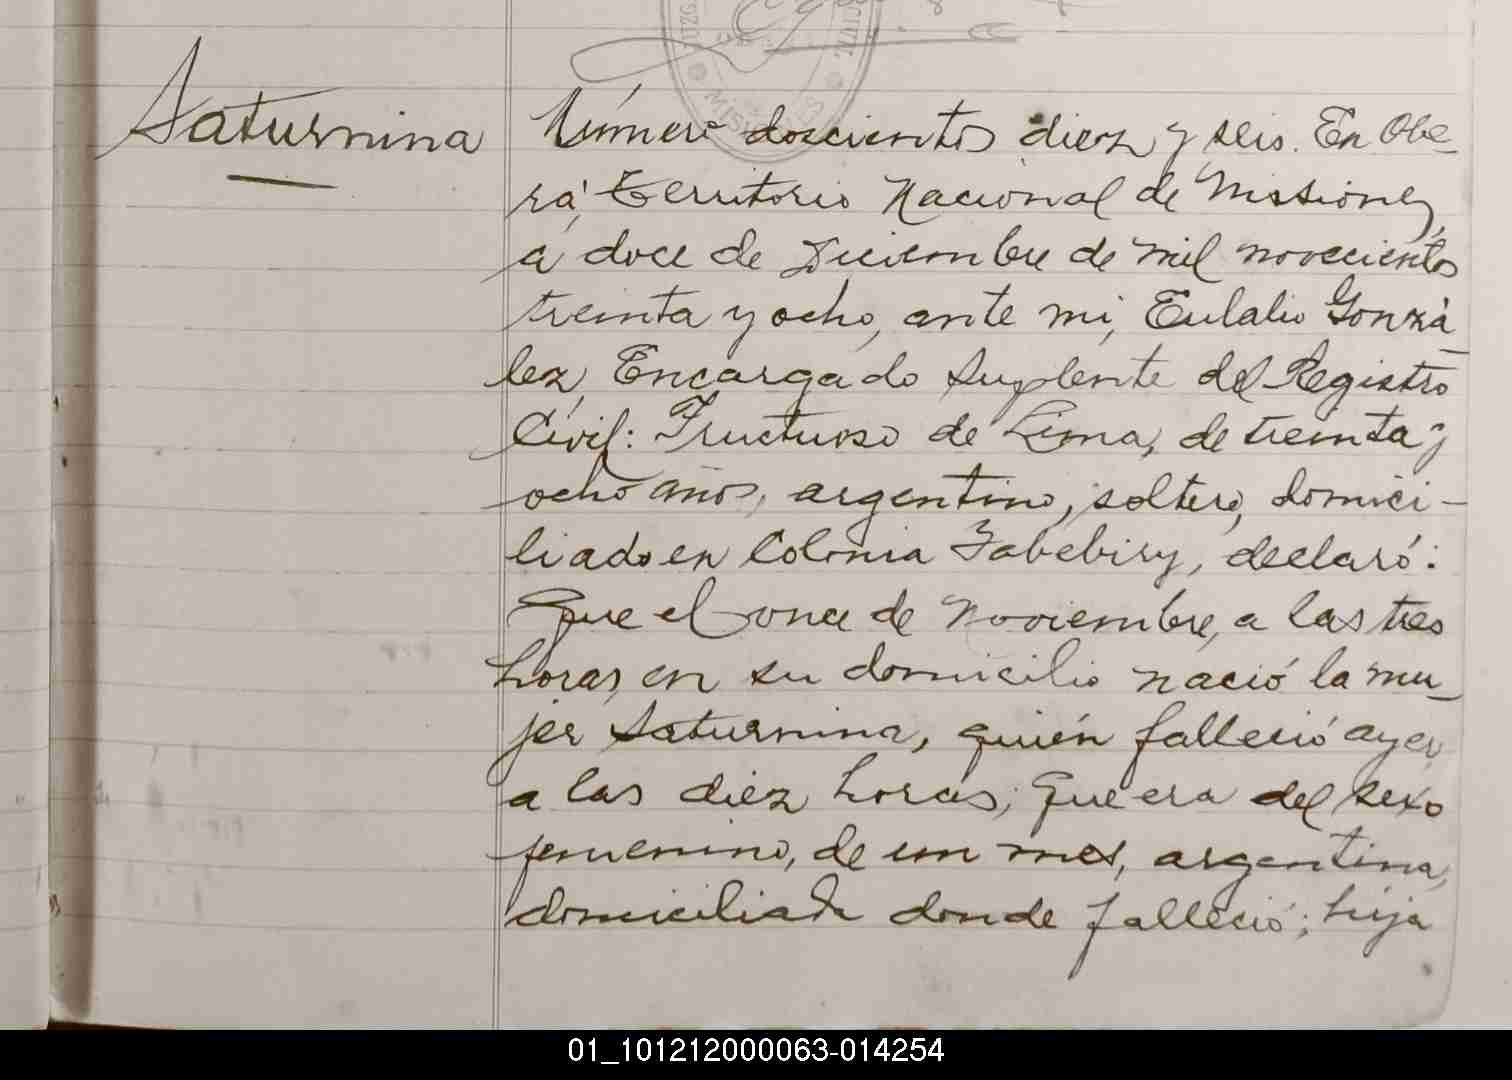 MISIONES
Saturnina
Número doscientos diez y seis. En Obe-
rá, territorio Nacional de Misiones,
a doce de Diciembre de mil novecientos
treinta y ocho, ante mi, Eulalio Gonzá-
lez, Encargado Suplente del Registro
Civil: Fructuoso de Lima, de treinta y
ocho años, argentino, soltero, domici-
liado en Colonia Yabebiry, declaró:
Que el once de Noviembre, a las tres
horas, en su domicilio nació la mu-
jer Saturnina, quién falleció ayer
a las diez horas; que era del sexo
femenino, de un mes, argentina,
domiciliada donde falleció; hija
01_101212000063-014254